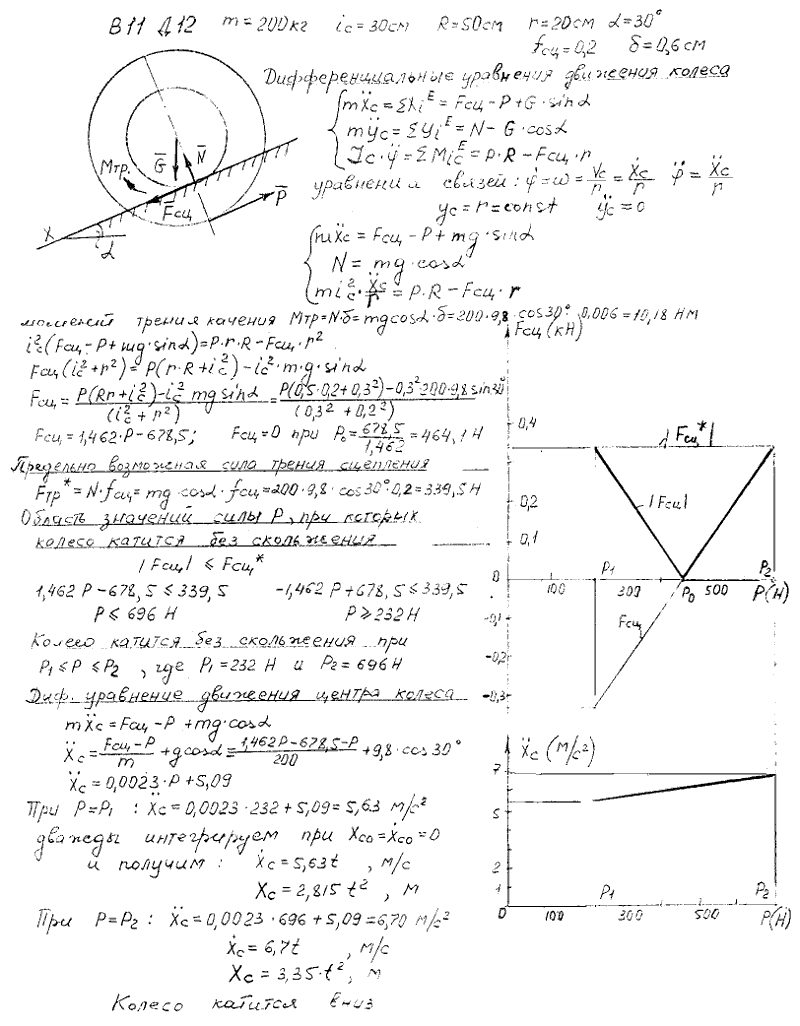 В11 Д12 m=200кг ic=30см R=50см r=20см α=30°
fсц=0,2 δ=0,6 см
Дифференциальные уравнения движения колеса
mẍc=ΣXiᴱ=Fсц-P+G·sinα
mÿc=ΣYiᴱ=N-G·cosα
Jc·φ̈=ΣMicᴱ=P·R-Fсц·r
уравнения связей: φ̇=ω=Vc/r=ẋc/r φ̈=ẍc/r
yc=r=const ÿc=0
mẍc=Fсц-P+mg·sinα
N=mg·cosα
mic²·ẍc/r=P·R-Fсц·r
Mтр.
G̅
N̅
F̅сц
P̅
X
α
момент трения качения Mтр=N·δ=mgcosα·δ=200·9,8·cos30°·0,006=10,18 Нм
ic²(Fсц-P+mg·sinα)=P·r·R-Fсц·r²
Fсц(ic²+r²)=P(r·R+ic²)-ic²·m·g·sinα
Fсц=P(Rr+ic²)-ic²mgsinα/(ic²+r²)=P(0,5·0,2+0,3²)-0,3²·200·9,8sin30°/(0,3²+0,2²)
Fсц=1,462·P-678,5; Fсц=0 при P₀=678,5/1,462=464,1 Н
Предельно возможная сила трения сцепления
Fтр*=N·fсц=mg·cosα·fсц=200·9,8·cos30°·0,2=339,5Н
Область значений силы P, при которых
колесо катится без скольжения
|Fсц| ≤ Fсц*
1,462P-678,5≤339,5 -1,462P+678,5≤339,5
P≤696 Н P≥232 Н
Колесо катится без скольжения при
P₁≤P≤P₂, где P₁=232 Н и P₂=696Н
Диф. уравнение движения центра колеса
mẍc=Fсц-P+mg·cosα
ẍc=Fсц-P/m+gcosα=1,462P-678,5-P/200+9,8·cos30°
ẍc=0,0023·P+5,09
При P=P₁: ẍc=0,0023·232+5,09=5,63 м/с²
дважды интегрируем при Xco=ẋco=0
и получим: ẋc=5,63t, м/с
Xc=2,815t², м
При P=P₂: ẍc=0,0023·696+5,09=6,70 м/с²
ẋc=6,7t, м/с
Xc=3,35·t², м
Колесо катится вниз
Fсц(кН)
0,4
|Fсц*|
0,2
|Fсц|
0,1
P₁ P₂
0 100 300 P₀ 500 P(Н)
-0,1
Fсц
-0,2
-0,3
ẍc(м/с²)
7
5
2
1
P₁ P₂
0 100 300 500 P(Н)